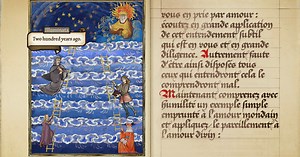 Two hundred years ago.
vous en prie par amour :
écoutez en grande application
de cet entendement subtil
qui est en vous et en grande
diligence. Autrement faute
d'être ainsi disposés tous
ceux qui entendront cela le
comprendront mal.
Maintenant comprenez avec
humilité un exemple simple
emprunté à l'amour mondain
et appliquez-le pareillement à
l'amour divin :